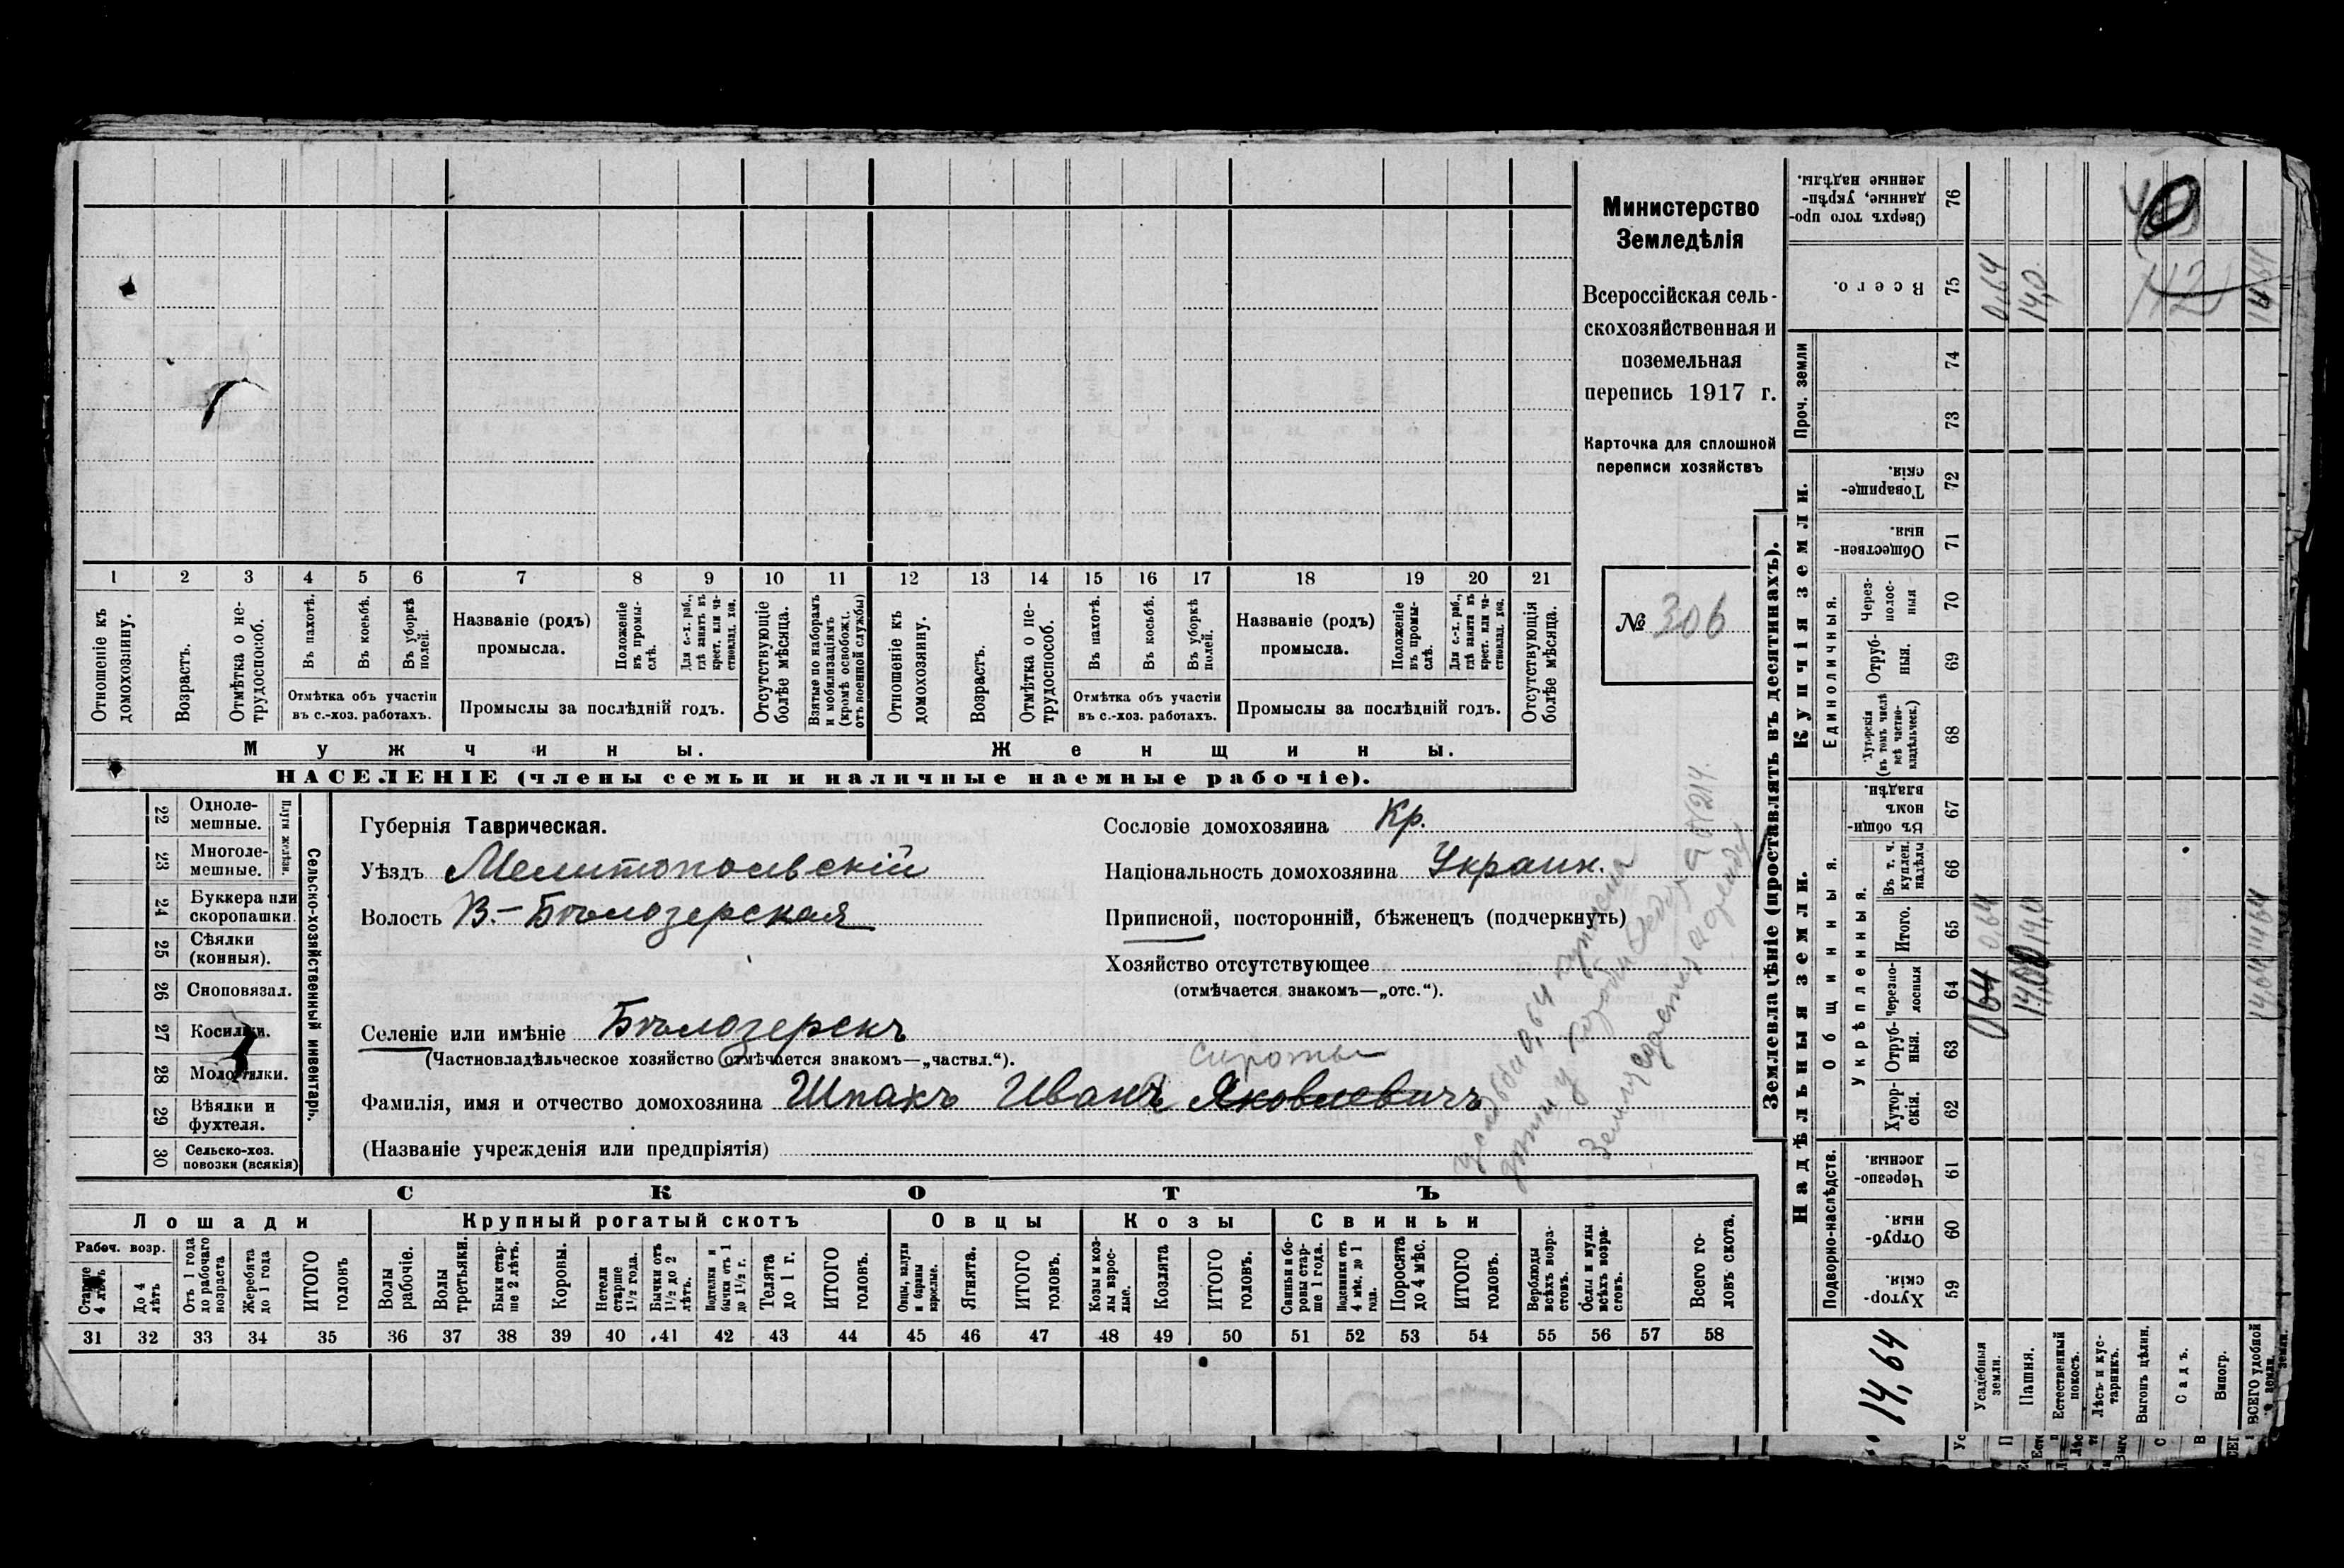 1 2 3 4 5 6 7 8 9 10 11 12 13 14 15 16 17 18 19 20 21
Отношеніе къ домохозяину.
Возрастъ.
Отмѣтка о не-
трудоспособ.
Въ пахотѣ.
Въ косьбѣ.
Въ уборкѣ
полей.
Отмѣтка объ участіи
въ с.-хоз. работахъ.
Названіе (родъ)
промысла.
Положеніе
въ промы-
слѣ.
Для с.-х. раб.,
гдѣ занятъ въ
крест. или ча-
стновлад. хоз.
Промыслы за послѣдній годъ.
Отсутствующіе
болѣе мѣсяца.
Взятые по наборамъ
и мобилизаціямъ
(кромѣ освобожд.
отъ военной службы)
Отношеніе къ
домохозяину.
Возрастъ.
Отмѣтка о не-
трудоспособ.
Въ пахотѣ.
Въ косьбѣ.
Въ уборкѣ
полей.
Отмѣтка объ участіи
въ с.-хоз. работахъ.
Названіе (родъ)
промысла.
Положеніе
въ промы-
слѣ.
Для с.-х. раб.,
гдѣ занята въ
крест. или ча-
стновлад. хоз.
Промыслы за послѣдній годъ.
Отсутствующія
болѣе мѣсяца.
Мужчины.
Женщины.
НАСЕЛЕНІЕ (члены семьи и наличные наемные рабочіе).
Министерство
Земледѣлія
Всероссійская сель-
скохозяйственная и
поземельная
перепись 1917 г.
Карточка для сплошной
переписи хозяйствъ
№ 306
22 Одноле-
мешные.
23 Многоле-
мешные.
Плуги желѣзн.
24 Буккера или
скоропашки.
25 Сѣялки
(конныя).
26 Сноповязал.
27 Косилки.
28 Молотилки.
29 Вѣялки и
фухтеля.
30 Сельско-хоз.
повозки (всякія)
Сельско-хозяйственный инвентарь.
Губернія Таврическая.
Уѣздъ Мелитопольскій
Волость В.-Бѣлозерская
Селеніе или имѣніе Бѣлозерскъ
(Частновладѣльческое хозяйство отмѣчается знакомъ—„частвл.“).
Сироты
Фамилія, имя и отчество домохозяина Шпакъ Иванъ Яковлевичъ
(Названіе учрежденія или предпріятія)
Сословіе домохозяина Кр.
Національность домохозяина Украин.
Приписной, посторонній, бѣженецъ (подчеркнуть)
Хозяйство отсутствующее
(отмѣчается знакомъ—„отс.“).
СКОТЪ
Лошади
Рабоч. возр.
Старше
4 лѣтъ
До 4
лѣтъ
Отъ 1 года
до рабочаго
возраста
Жеребята
до 1 года
ИТОГО
головъ
Крупный рогатый скотъ
Волы
рабочіе.
Волы
третьяки.
Быки стар-
ше 2 лѣтъ.
Коровы.
Нетели
старше
1½ года.
Бычки отъ
1½ до 2
лѣтъ.
Подтелки и
бычки отъ 1
до 1½ г.
Телята
до 1 г.
ИТОГО
головъ.
Овцы
Овцы, валухи
и бараны
взрослые.
Ягнята.
ИТОГО
головъ.
Козы
Козы и коз-
лы взрос-
лые.
Козлята
ИТОГО
головъ.
Свиньи
Свиньи и бо-
ровы стар-
ше 1 года.
Подсвинки отъ
4 мѣс. до 1
года.
Поросята
до 4 мѣс.
ИТОГО
головъ.
Верблюды
всѣхъ возра-
стовъ.
Ослы и мулы
всѣхъ возра-
стовъ.
Всего го-
ловъ скота.
31 32 33 34 35 36 37 38 39 40 41 42 43 44 45 46 47 48 49 50 51 52 53 54 55 56 57 58
Землевладѣніе (проставлять въ десятинахъ).
Купчія земли.
Надѣльныя земли.
Сверхъ того про-
данные, укрѣп-
ленные надѣлы.
76
Всего.
75 0,64 14,0 14,64
Проч. земли
74
73
Товарище-
скія.
72
Обществен-
ныя.
71
Единоличныя.
Через-
полос-
ныя
70
Отруб-
ныя.
69
Хуторскія
(въ томъ числѣ
всѣ частно-
владѣльческ.)
68
Общинныя.
Въ общин-
номъ
владѣн.
67
Укрѣпленныя.
Въ т. ч.
куплен.
надѣлы
66
Итого.
65 0,64 14,0 14,64
Черезпо-
лосныя
64 0,64 14,00 14,64
Отруб-
ныя.
63
Хутор-
скія.
62
Подворно-наслѣдств.
Черезпо-
лосныя.
61
Отруб-
ныя.
60
Хутор-
скія.
59
14,64
Усадебныя
земли.
Пашня.
Естественный
покосъ.
Лѣсъ и кус-
тарникъ.
Выгонъ цѣлин.
Садъ.
Виногр.
ВСЕГО удобной
земли.